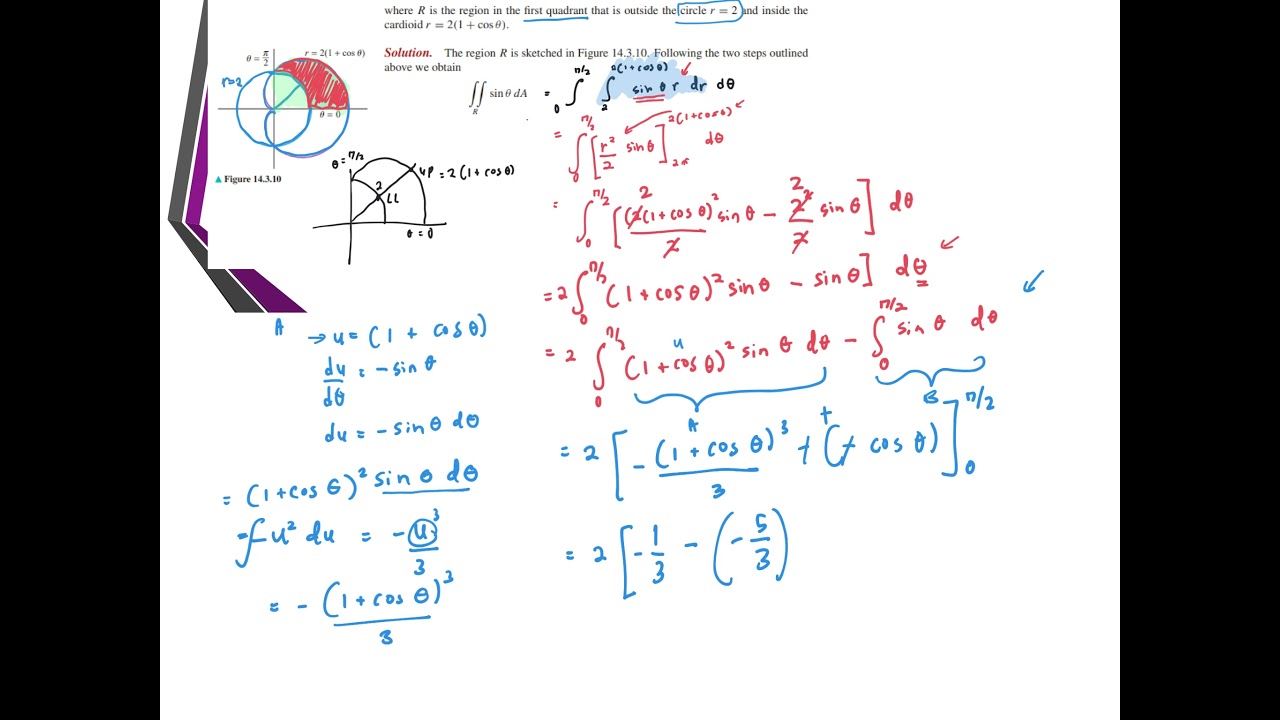 where R is the region in the first quadrant that is outside the circle r = 2 and inside the
cardioid r = 2(1 + cos θ).
Solution. The region R is sketched in Figure 14.3.10. Following the two steps outlined
above we obtain
θ = π/2
r = 2(1 + cos θ)
r=2
θ = 0
▲ Figure 14.3.10
∬_R sin θ dA = ∫_0^{π/2} ∫_2^{2(1+cos θ)} sin θ r dr dθ
= ∫_0^{π/2} [r²/2 sin θ]_2^{2(1+cos θ)} dθ
θ = π/2
UP = 2(1 + cos θ)
2
LL
θ = 0
= ∫_0^{π/2} [(2(1+cos θ)² sin θ)/2 − 2²/2 sin θ] dθ
2
2
= 2 ∫_0^{π/2} (1 + cos θ)² sin θ − sin θ] dθ
u
= 2 ∫_0^{π/2} (1 + cos θ)² sin θ dθ − ∫_0^{π/2} sin θ dθ
A
B
= 2 [−(1 + cos θ)³/3 + (+ cos θ)]_0^{π/2}
+
= 2 [−1/3 − (−5/3)
A → u = (1 + cos θ)
du/dθ = − sin θ
du = − sin θ dθ
= (1+cos θ)² sin θ dθ
= −∫ u² du = −u³/3
= − (1 + cos θ)³/3